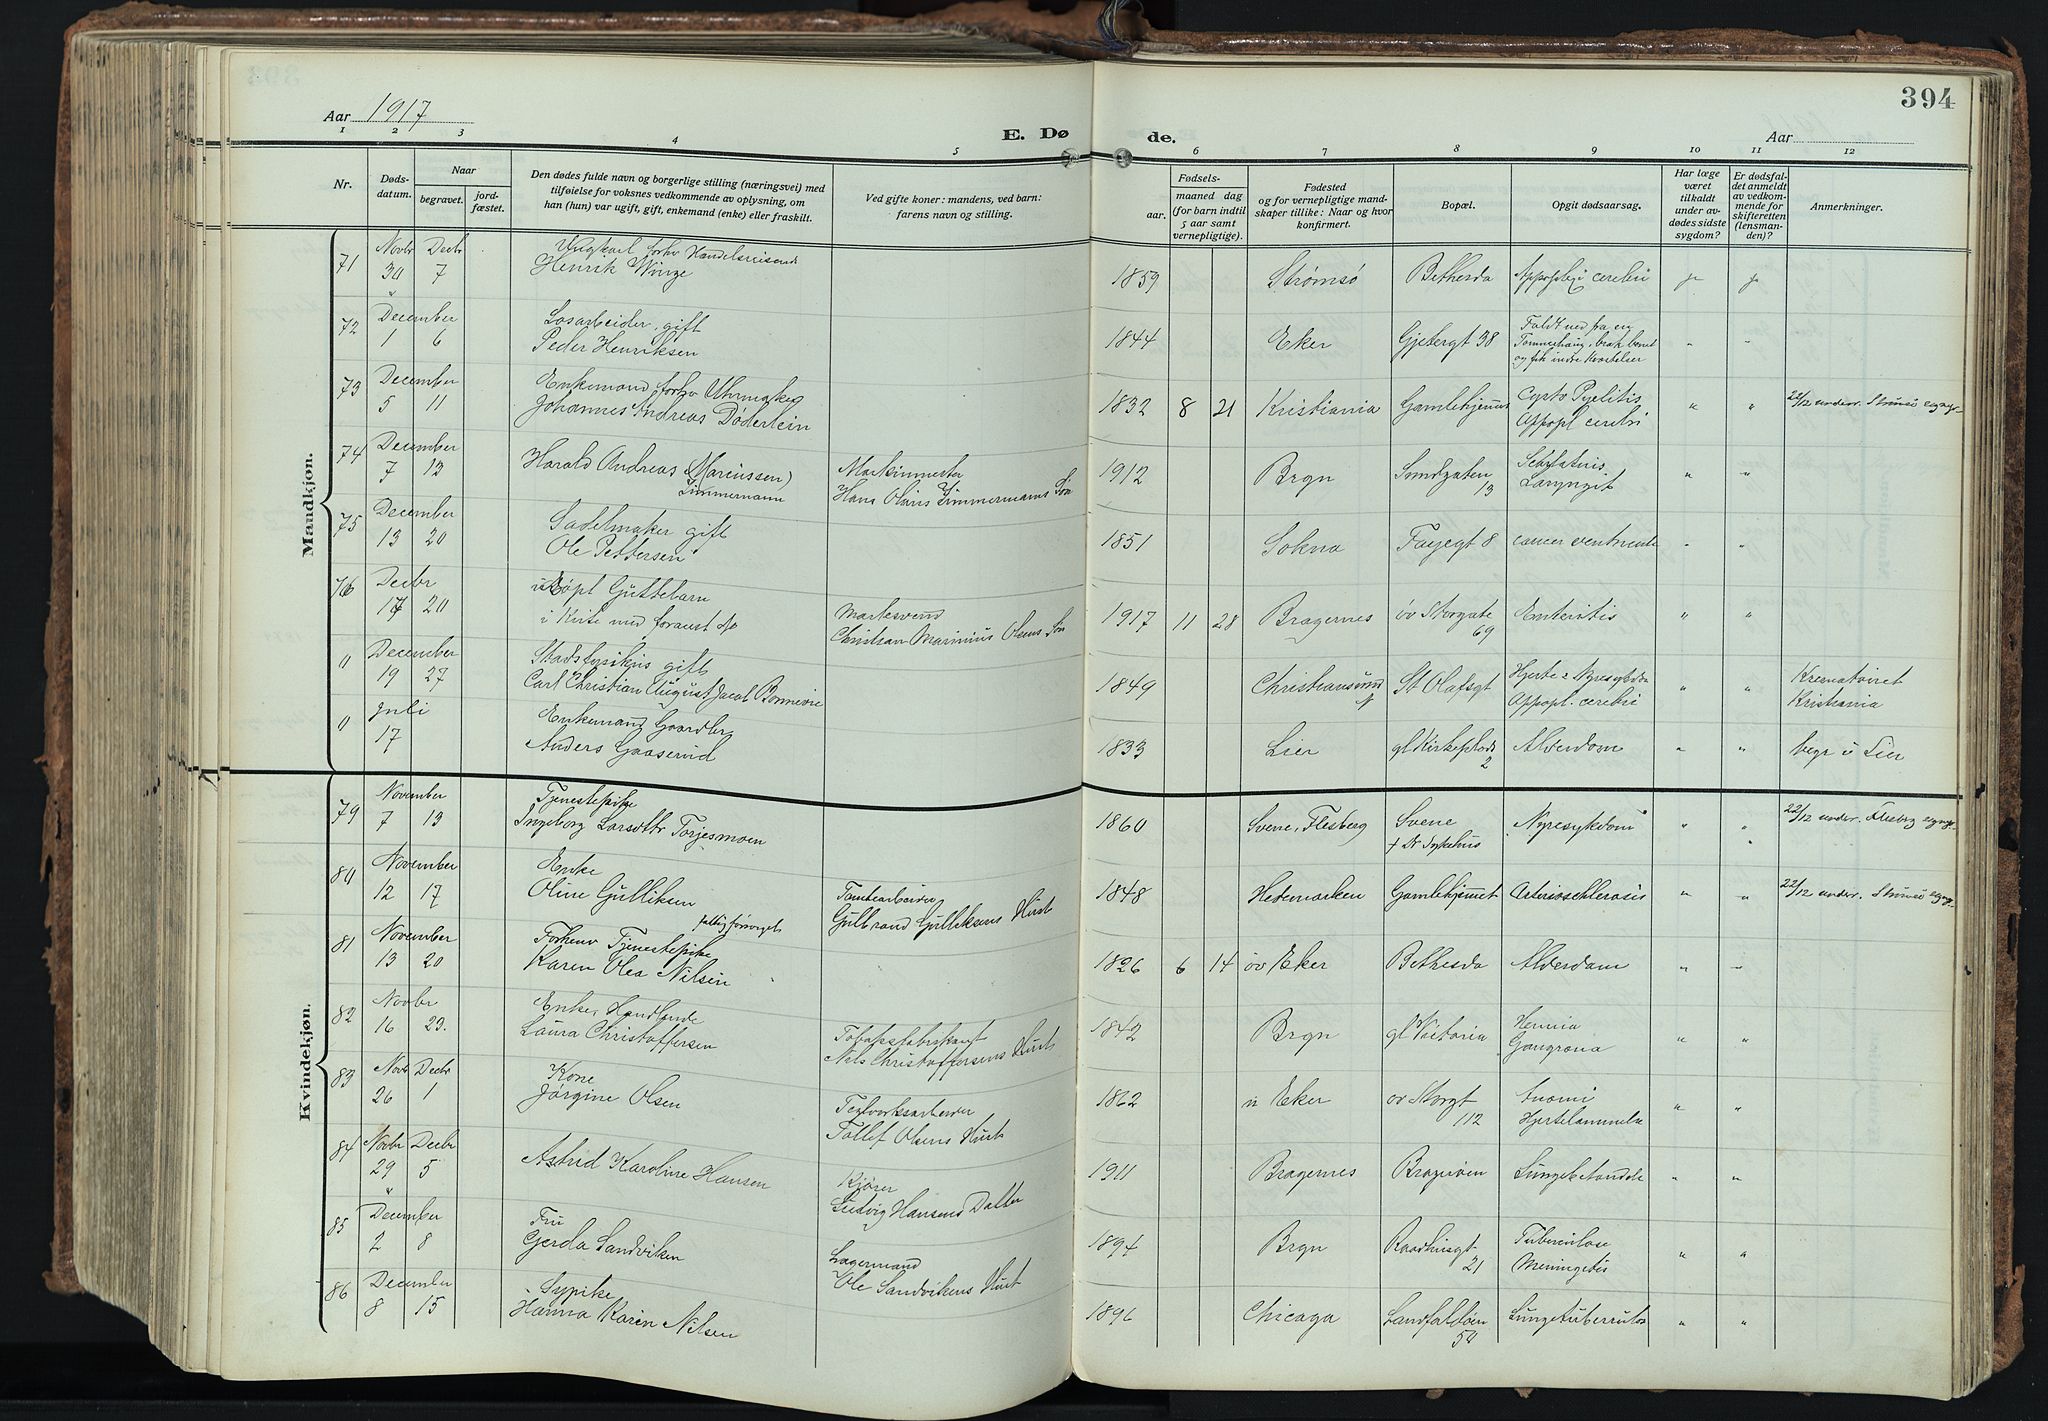 394
Aar 1917
E. Døde.
Aar
1 2 3 4 5 6 7 8 9 10 11 12
Nr.
Døds-
datum.
Naar
begravet.
jord-
fæstet.
Den dødes fulde navn og borgerlige stilling (næringsvei) med
tilføielse for voksnes vedkommende av oplysning, om
han (hun) var ugift, gift, enkemand (enke) eller fraskilt.
Ved gifte koner: mandens, ved barn:
farens navn og stilling.
Fødsels-
aar. maaned dag
(for barn indtil
5 aar samt
vernepligtige).
Fødested
og for vernepligtige mand-
skaper tillike: Naar og hvor
konfirmert.
Bopæl.
Opgit dødsaarsag.
Har læge
været
tilkaldt
under av-
dødes sidste
sygdom?
Er dødsfal-
det anmeldt
av vedkom-
mende for
skifteretten
(lensman-
den)?
Anmerkninger.
Mandkjøn.
71 Novbr Decbr Ungkarl forhv Handelsreisende
30 7 Henrik Winge 1859 Strømsø Bethesda cerebri ja ja
72 December Løsarbeider, gift
1 6 Peder Henriksen 1844 Eker Gjetergt 38 Faldt ned fra en
Tømmerhaug, brak benet
og fik indre Kvæstelser " "
73 December Enkemand forhv Uhrmaker
5 11 Johannes Andreas Døderlein 1832 8 21 Kristiania Gamlehjemmet Cysto Pyelitis
Appopl cerebri " " 22/12 underr. Strømsø
74 December Harald Andreas (Marcussen)
7 12 Zimmermann
Hans Olaus Zimmermanns Søn 1912 Brgn Sundgaten
13
Laryngit " "
75 December Sadelmaker gift
13 20 Ole Pettersen 1851 Sokna Fayegt 8 cancer ventriculi " "
76 Decbr Guttebarn
17 20
Christian Marinius Olsens Søn 1917 11 28 Bragernes öv Storgate
69 Enteritis " "
0 December Stadsfysikus gift
19 27 Carl Christian August Jacob Bonnevie 1849 Christianssund
N St Olafsgt Hjerte & Nyresykdom
Appopl. cerebri " " Krematoriet
Kristiania
0 Juli Enkemand Gaardbr
17 Anders Gaaserud 1833 Lier gl Kirkeplads
2 Alderdom " " begr i Lier
Kvindekjøn.
79 November Tjenestepike
7 13 Ingeborg Larsdtr Torjesmoen 1860 Svene, Flesberg Svene
+ Dr Sykehus Nyresykdom " " 22/12 under. Flesberg
80 November Enke
12 17 Oline Gulliksen Tomtearbeider
Gulbrand Gulliksens Hust 1848 Hedemarken Gamlehjemmet Arteriosclerosis " " 22/12 under. Strømsø
81 November Forhenv Tjenestepike fattigforsørget
13 20 Karen Olea Nilsen 1826 6 14 öv Eker Bethesda Alderdom " "
82 Novbr Enke, Handlende
16 23. Laura Christoffersen Tobaksfabrikant
Nils Christoffersens Hust 1842 Brgn gl Victoria Hernia
Gangræna " "
83 Novbr Decbr Kone
26 1 Jørgine Olsen
Tollef Olsens Hust 1862 n Eker öv Storgt
112 Anæmi
Hjertelammelse " "
84 Novbr Decbr Astrid Karoline Hansen
29 5 Kjører
Ludvig Hansens Datter 1911 Bragernes Bragerøen " "
85 December Fru
2 8 Gerda Sandviken Lagermand
Ole Sandvikens Hust 1894 Brgn Raadhusgt
21 Tuberculose
Meningitis " "
86 December Sypike
8 15 Hanna Karen Nilsen 1896 Chicago Landfaldøen
54 Lungetuberculos " "